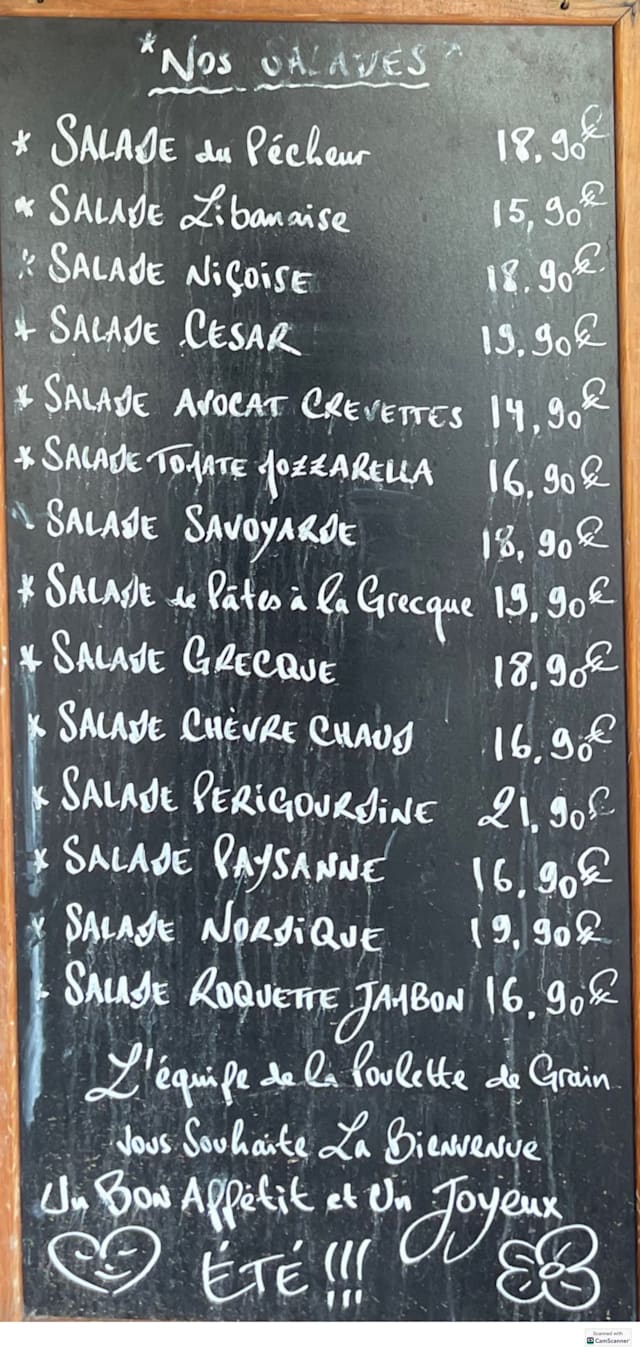 *Nos SALADES*
* SALADE du Pécheur 18,90€
* SALADE Libanaise 15,90€
* SALADE NiÇOiSE 18.90€
* SALADE CESAR 19.90€
* SALADE AVOCAT CREVETTES 14,90€
* SALADE TOMATE MOZZARELLA 16,90€
- SALADE SAVOYARDE 18,90€
* SALADE de Pâtes à la Grecque 19,90€
* SALADE GRECQUE 18,90€
* SALADE CHÈVRE CHAUD 16,90€
* SALADE PERiGOURDiNE 21,90€
* SALADE PAYSANNE 16,90€
* SALADE NORDiQUE 19,90€
- SALADE ROQUETTE JAMBON 16,90€
L'équipe de la Poulette de Grain
Vous Souhaite La BiENVENUE
Un BON Appétit et Un Joyeux
ÉTÉ !!!
Scanned with
CS CamScanner